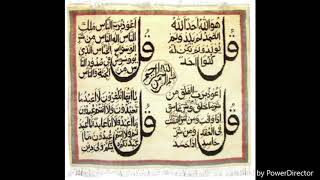 قل
هو الله احد الله
الصمد لم يلد ولم
يولد ولم يكن له
كفوا احد
قل
اعوذ برب الناس ملك
الناس اله الناس من شر
الوسواس الخناس الذي
يوسوس في صدور الناس
من الجنة والناس
بسم الله الرحمن الرحيم
قل
اعوذ برب الفلق من
شر ما خلق ومن شر غاسق
اذا وقب ومن شر النفاثات
في العقد ومن شر
حاسد اذا حسد
قل
يا ايها الكافرون لا اعبد ما
تعبدون ولا انتم عابدون ما
اعبد ولا انا عابد ما
by PowerDirector